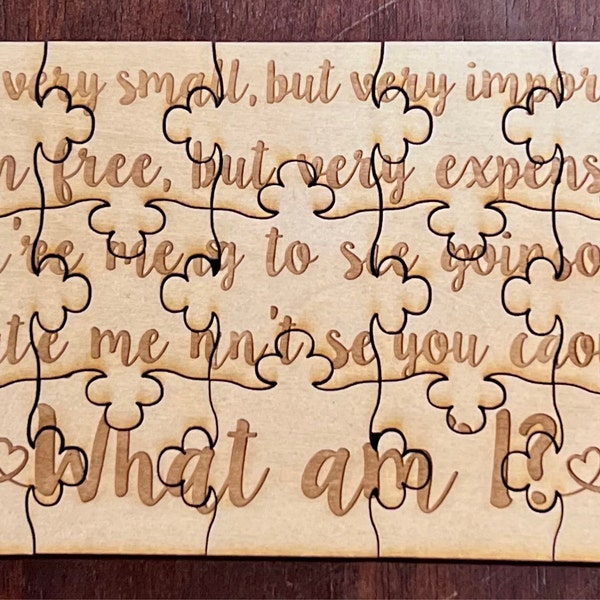 very small, but very impor
n free, but very expens
're meng to se goinso
te me nn't se you caou
What am I?